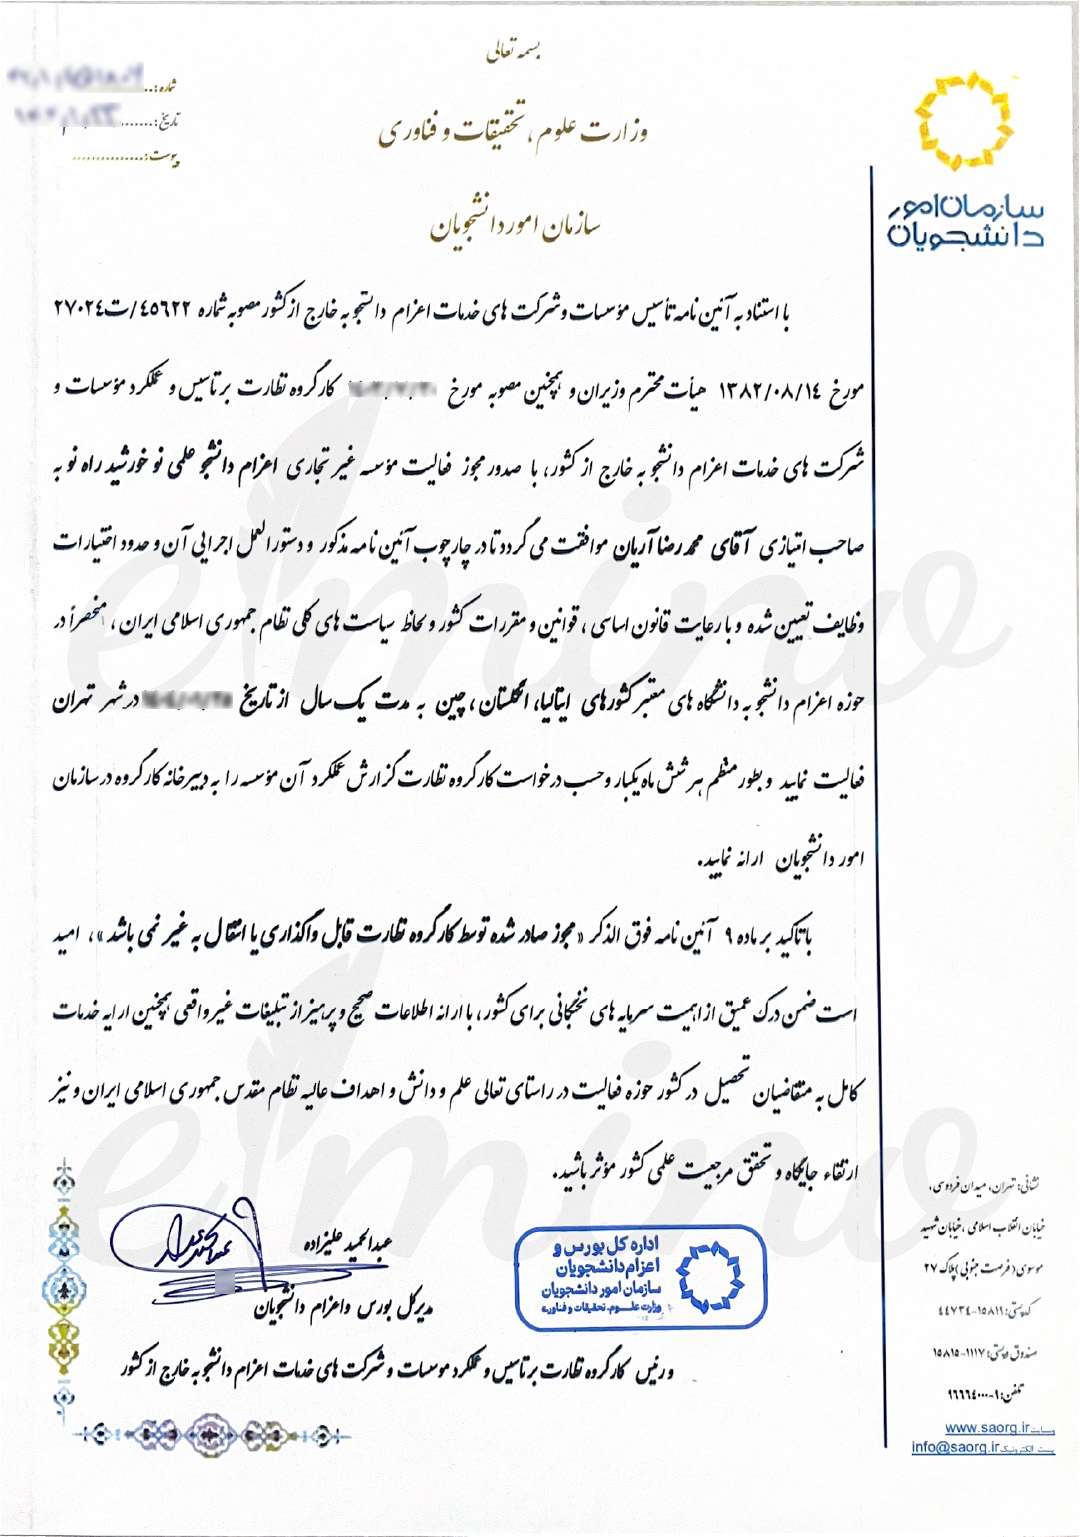 بسمه تعالی
شماره:
تاریخ:
پیوست:
وزارت علوم، تحقیقات و فناوری
سازمان امور دانشجویان
سازمان امور
دانشجویان
با استناد به آئین نامه تأسیس مؤسسات و شرکت های خدمات اعزام دانشجو به خارج از کشور مصوبه شماره ۴۵۶۲۲/ت۲۷۰۲۴
مورخ ۱۳۸۲/۰۸/۱۴ هیأت محترم وزیران و همچنین مصوبه مورخ کارگروه نظارت بر تاسیس و عملکرد مؤسسات و
شرکت های خدمات اعزام دانشجو به خارج از کشور، با صدور مجوز فعالیت مؤسسه غیر تجاری اعزام دانشجو علمی نو خورشید راه نو به
صاحب امتیازی آقای محمدرضا آریان موافقت می گردد تا در چارچوب آئین نامه مذکور و دستورالعمل اجرایی آن و حدود اختیارات
وظایف تعیین شده و با رعایت قانون اساسی، قوانین و مقررات کشور و لحاظ سیاست های کلی نظام جمهوری اسلامی ایران، منحصراً در
حوزه اعزام دانشجو به دانشگاه های معتبر کشورهای ایتالیا، انگلستان، چین به مدت یک سال از تاریخ در شهر تهران
فعالیت نمایید و بطور منظم هر شش ماه یکبار و حسب درخواست کارگروه نظارت گزارش عملکرد آن مؤسسه را به دبیرخانه کارگروه در سازمان
امور دانشجویان ارائه نمایید.
با تاکید بر ماده ۹ آئین نامه فوق الذکر «مجوز صادر شده توسط کارگروه نظارت قابل واگذاری یا انتقال به غیر نمی باشد»، امید
است ضمن درک عمیق از اهمیت سرمایه های نخبگانی برای کشور، با ارائه اطلاعات صحیح و پرهیز از تبلیغات غیر واقعی همچنین ارایه خدمات
کامل به متقاضیان تحصیل در کشور حوزه فعالیت در راستای تعالی علم و دانش و اهداف عالیه نظام مقدس جمهوری اسلامی ایران و نیز
ارتقاء جایگاه و تحقق مرجعیت علمی کشور مؤثر باشید.
عبدالحمید علیزاده
مدیرکل بورس و اعزام دانشجویان
و رئیس کارگروه نظارت بر تاسیس و عملکرد موسسات و شرکت های خدمات اعزام دانشجو به خارج از کشور
اداره کل بورس و
اعزام دانشجویان
سازمان امور دانشجویان
وزارت علوم، تحقیقات و فناوری
نشانی: تهران، میدان فردوسی،
خیابان انقلاب اسلامی، خیابان شهید
موسوی (فرصت جنوبی) پلاک ۲۷
کدپستی: ۱۵۸۱۱-۴۴۷۳۴
صندوق پستی: ۱۱۱۷-۱۵۸۱۵
تلفن: ۱-۹۶۶۶۴۰۰۰
وبسایت www.saorg.ir
پست الکترونیک info@saorg.ir
elmino
elmino